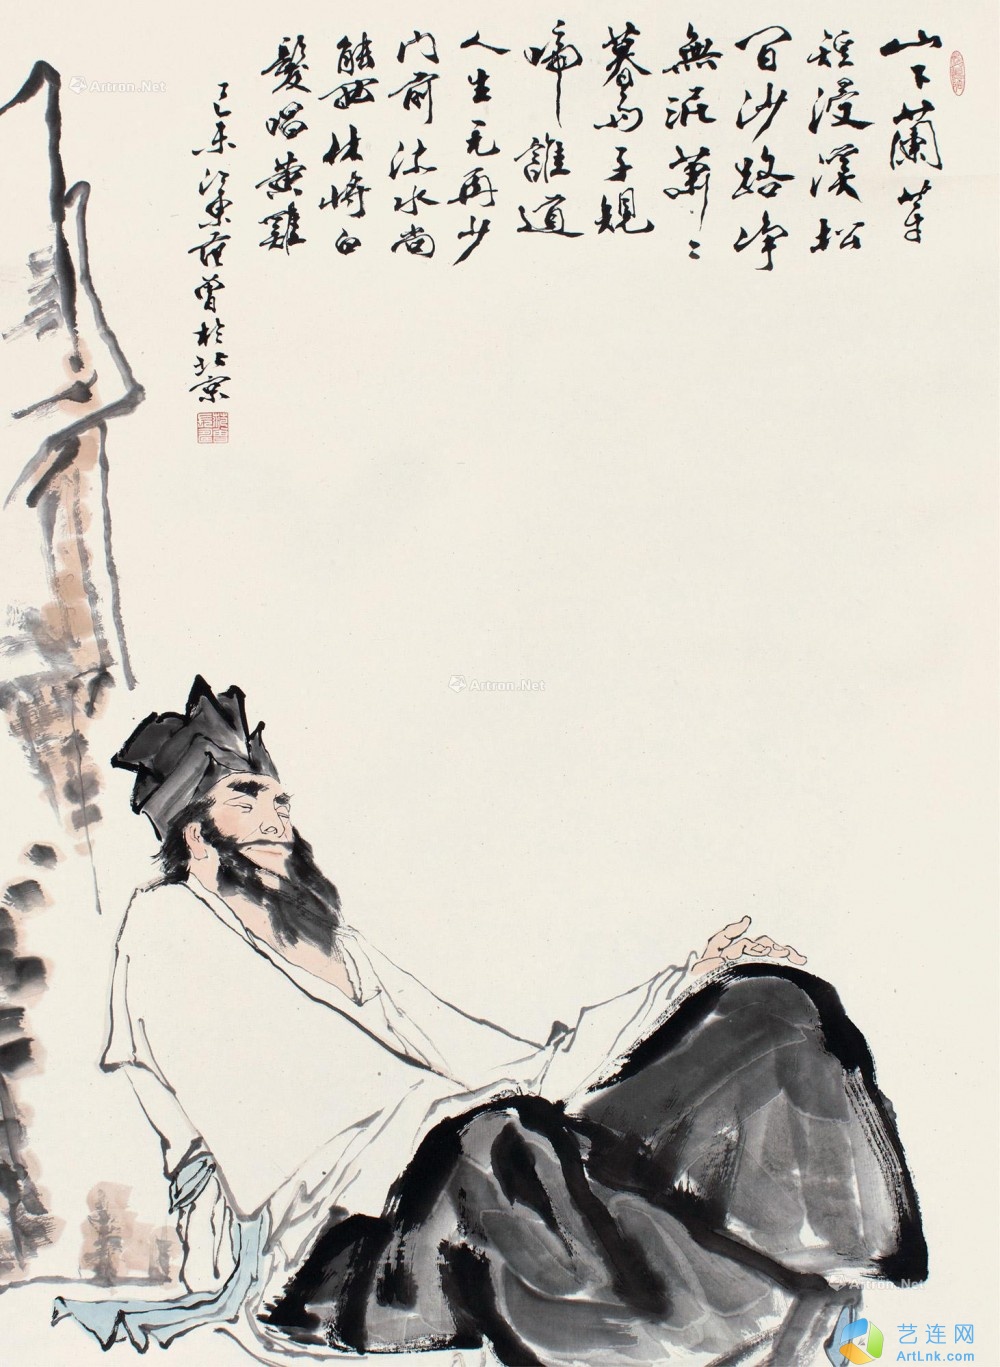 山下蘭芽
短浸溪松
间沙路净
無泥蕭〻
暮雨子規
啼誰道
人生无再少
门前流水尚
能西休將白
髮唱黄雞
己未江東范曾於北京
Artron.Net
Artron.Net
Artron.Net
艺连网
ArtLnk.com